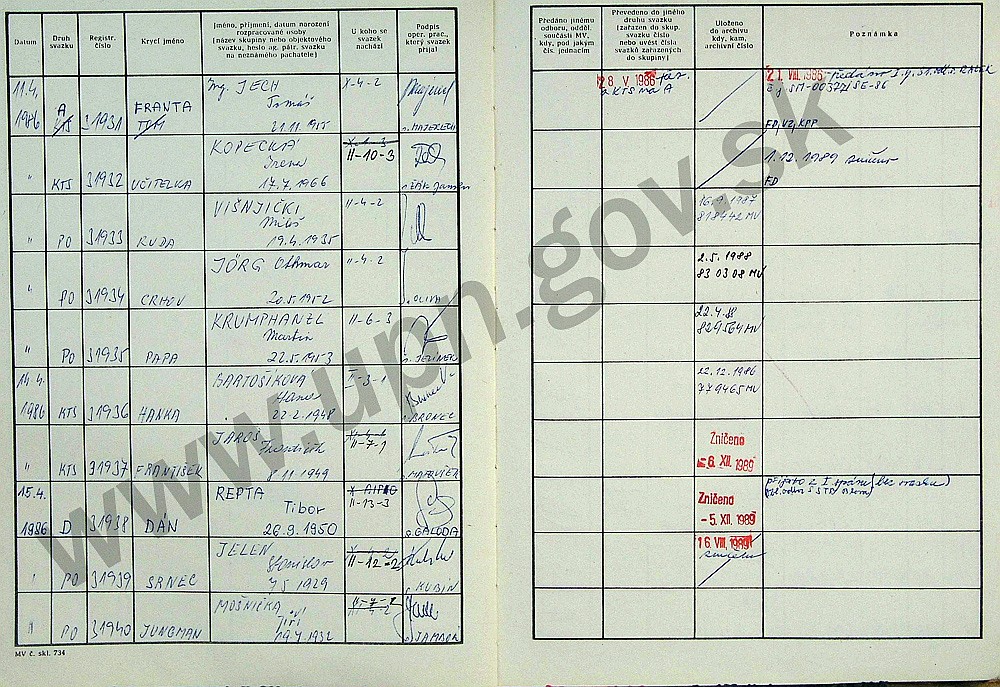 Datum
Druh svazku
Registr. číslo
Krycí jméno
Jméno, příjmení, datum narození
rozpracované osoby
(název skupiny nebo objektového
svazku, heslo ag. pátr. svazku
na neznámého pachatele)
U koho se
svazek
nachází
Podpis
oper. prac.,
který svazek
přijal
Předáno jinému
odboru, odděl.
součásti MV,
kdy, pod jakým
čís. jednacím
Převedeno do jiného
druhu svazku
(zařazen do skup.
svazku číslo
nebo uvést čísla
svazků zařazených
do skupiny)
Uloženo
do archivu
kdy, kam,
archivní číslo
Poznámka
11.4.
1986 A KTS 31931 FRANTA TOM Ing. JECH Tomáš 21.11.1955 X-4-2
28. V. 1986
a KTS na A
21. VIII. 1986 předáno
č.j. SM-00377/SE-86
FD, VZ, KPP
" KTS 31932 UČITELKA KOPECKÁ Irena 17.7.1966 II-10-3
1.12.1989
FD
" PO 31933 RUDA VIŠNJIČKI Miloš 19.4.1935 II-4-2
16.9.1987
818442 MV
" PO 31934 CRHOV JÖRG Othmar 20.5.1952 II-4-2 OLIVA
2.5.1988
830308 MV
" PO 31935 PAPA KRUMPHANZL Martin 22.5.1953 II-6-3 JELÍNEK
22.4.88
829564 MV
14.4.
1986 KTS 31936 HANKA BARTOŠÍKOVA Hana 22.2.1948 II-3-1 BRONEC
22.12.1986
779465 MV
" KTS 31937 FRANTIŠEK JAROŠ František 8.11.1949 II-7-1
Zničeno
- 6. XII. 1989
15.4.
1986 D 31938 DÁN REPTA Tibor 26.9.1950 II-13-3 GALODA
Zničeno
- 5. XII. 1989
přijato z I. správy (bez svazku)
" PO 31939 SRNEC JELEN Stanislav 7.5.1929 II-12-2 KUBÍN
16. VIII. 1989
" PO 31940 JUNGMAN MOŠNIČKA Jiří 19.7.1932
MV č. skl. 734
www.upn.gov.sk